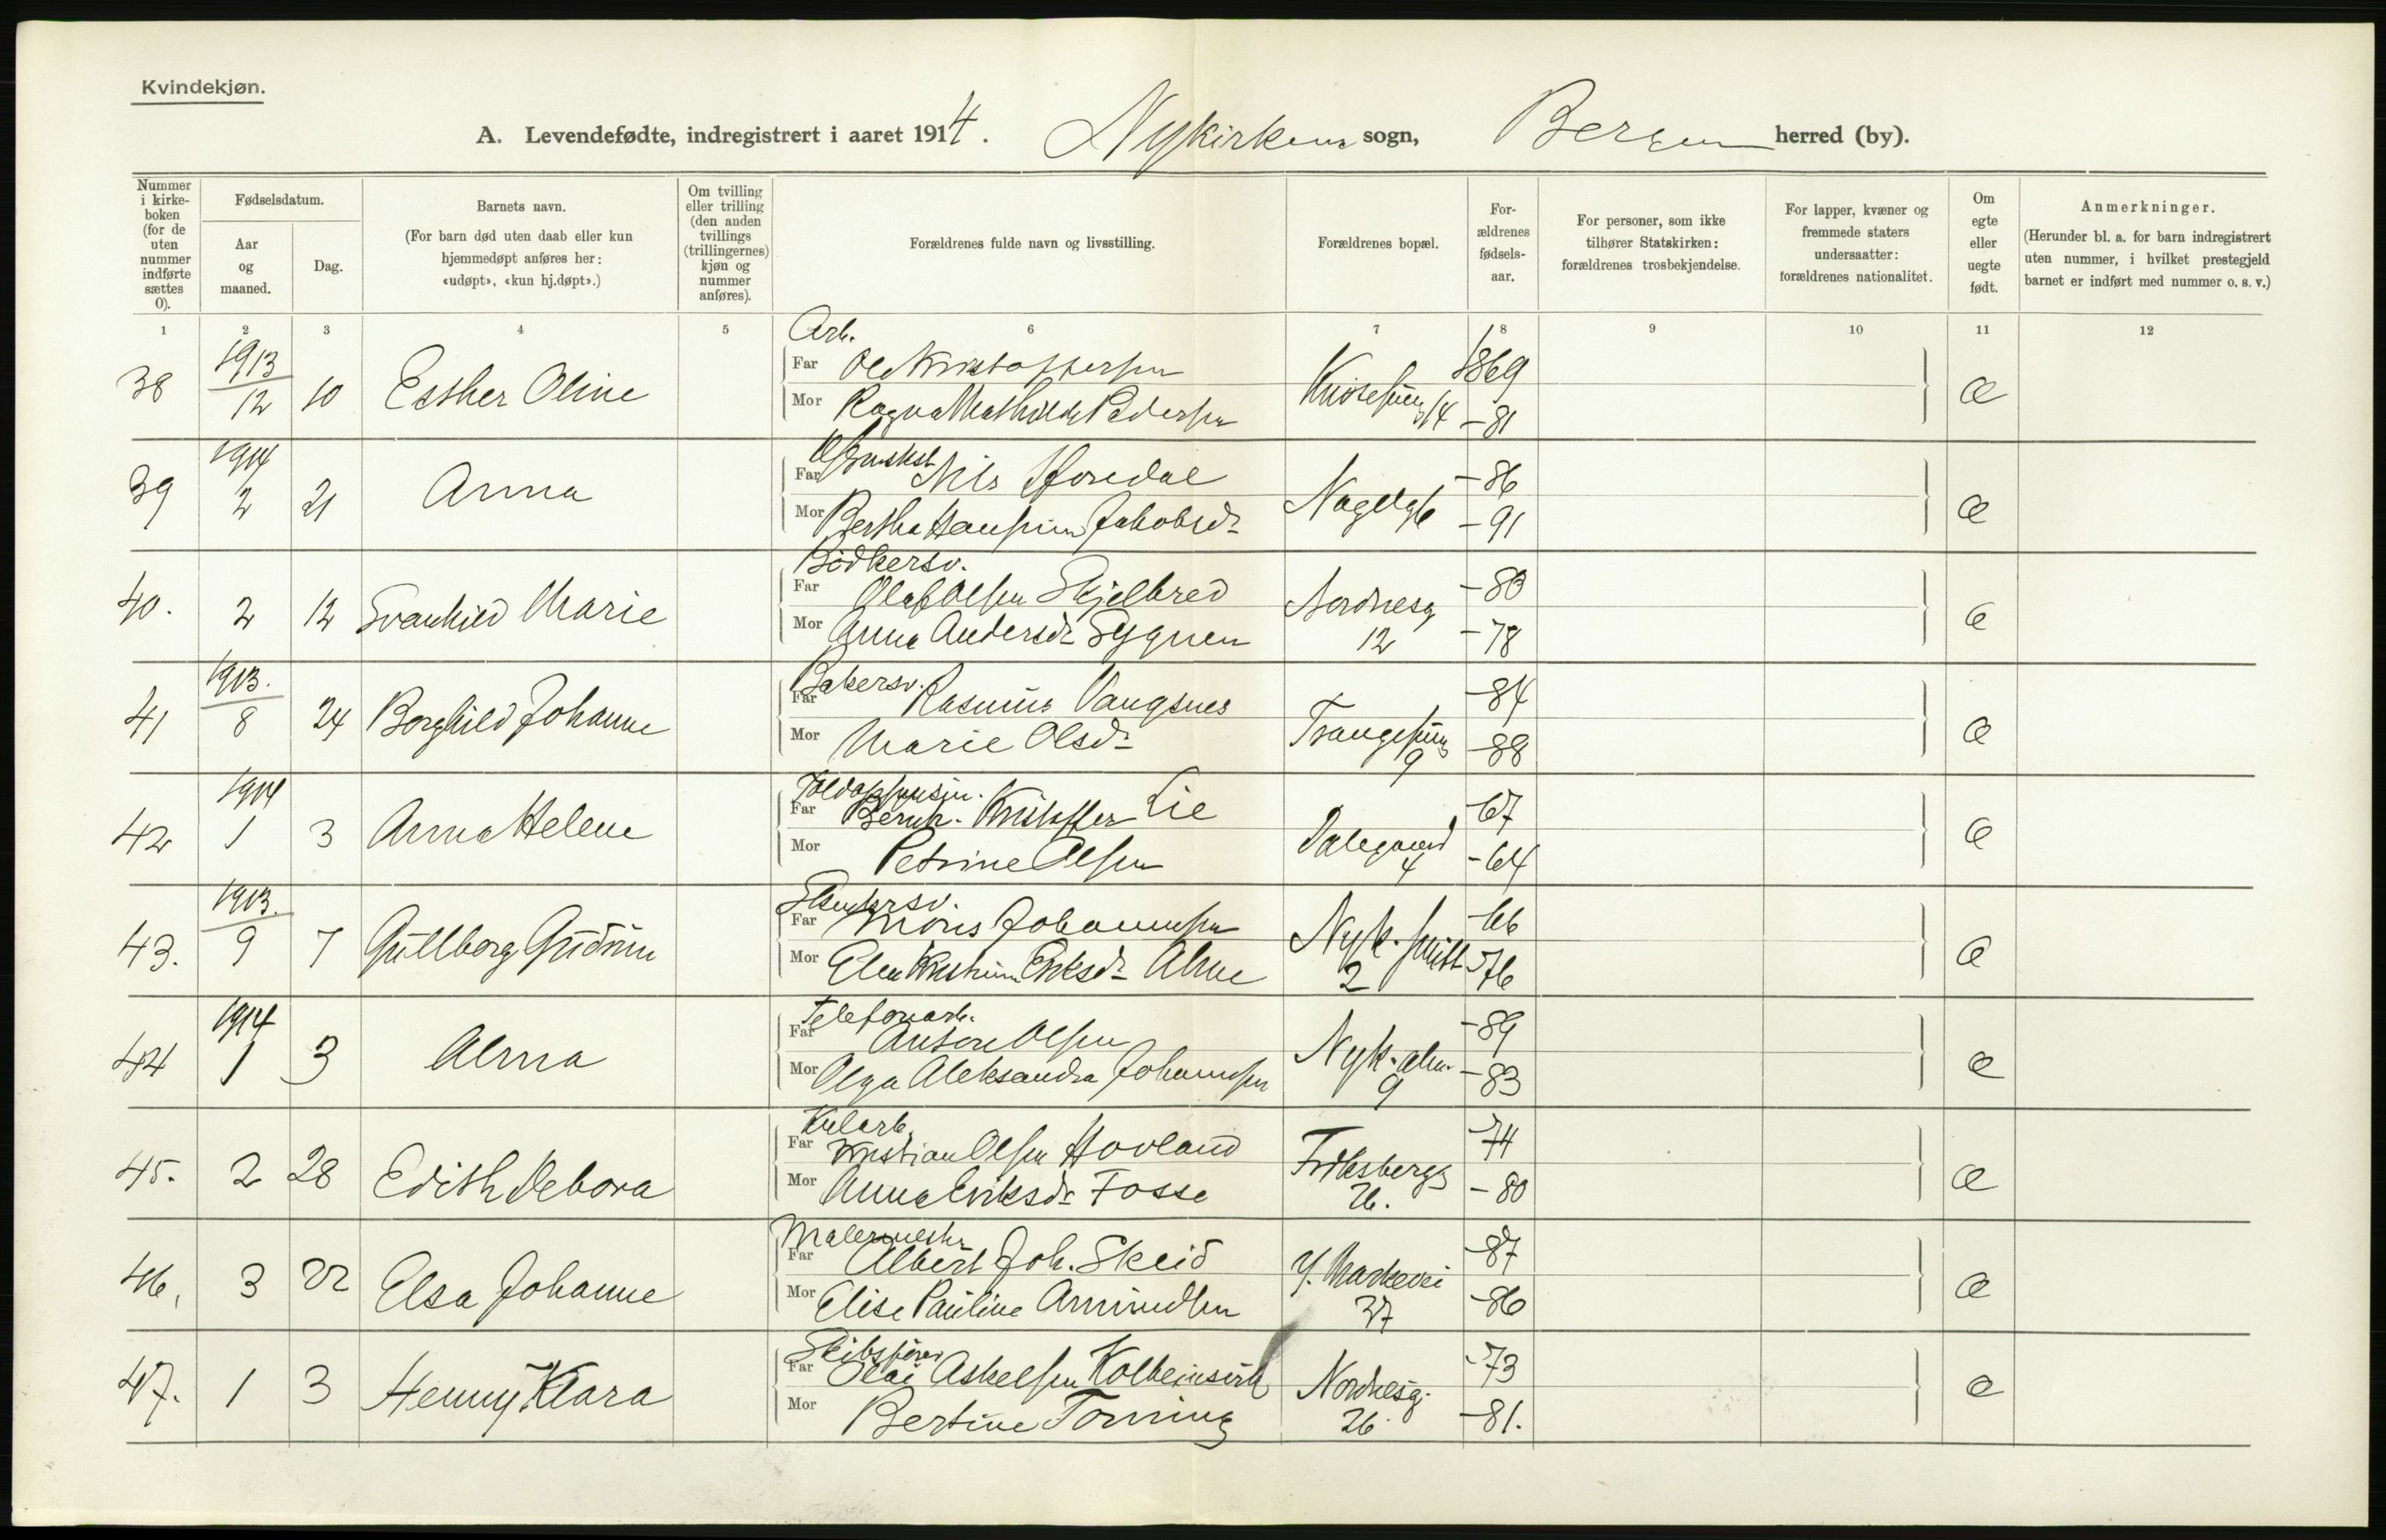 Kvindekjøn.
A. Levendefødte, indregistrert i aaret 1914. Nykirkens sogn, Bergen herred (by).
Nummer i kirke- boken (for de uten nummer indførte sættes 0).
Fødselsdatum.
Aar og maaned.
Dag.
Barnets navn.
(For barn død uten daab eller kun hjemmedøpt anføres her: «udøpt», «kun hj.døpt».)
Om tvilling eller trilling (den anden tvillings (trillingernes) kjøn og nummer anføres).
Forældrenes fulde navn og livsstilling.
Forældrenes bopæl.
For- ældrenes fødsels- aar.
For personer, som ikke tilhører Statskirken: forældrenes trosbekjendelse.
For lapper, kvæner og fremmede staters undersaatter: forældrenes nationalitet.
Om egte eller uegte født.
Anmerkninger.
(Herunder bl. a. for barn indregistrert uten nummer, i hvilket prestegjeld barnet er indført med nummer o. s. v.)
1 2 3 4 5 6 7 8 9 10 11 12
Arb.
38 1913 12 10 Esther Oline Far Ole Kristoffersen 1869
Mor Ragna Mathilde Pedersen 14 -81 E
39 1914 2 21 Anna Far Nils -86
Mor Bertha Jakobsdr Nagelg 6 -91 E
Bødkersv.
40. 2 12 Svanhild Marie Far Olaf Olsen Skjelbred Nordnesg -80
Mor Anna Andersdr Sygnen 12 -78 E
Bakersv.
41 1913. 8 24 Borghild Johanne Far Rasmus Vangsnes -84
Mor Marie Olsdr 9 -88 E
42 1914 1 3 Anna Helene Far Bernh. Kristoffer Lie -67
Mor Petrine Olsen 4 -64 E
43. 1913. 9 7 Gullborg Gudrun Far Mons Johannesen Nyk. smitt -66
Mor Eriksdr Alme 2 -76 E
Telefonarb.
44 1914 1 3 Alma Far Anton Olsen Nyk. alm. -89
Mor Olga Aleksandra Johannesen 9 -83 E
Kularb.
45. 2 28 Edith Debora Far Kristian Olsen Hovland -74
Mor Anna Eriksdr Fosse 26. -80 E
Malermestr
46. 3 22 Elsa Johanne Far Albert Joh. Skeid Y. Markevei -87
Mor Elise Pauline Amundsen 37 -86 E
Skibsfører
47. 1 3 Henny Klara Far Olai Askelsen Nordnesg. -73
Mor Bertine 26 -81. E